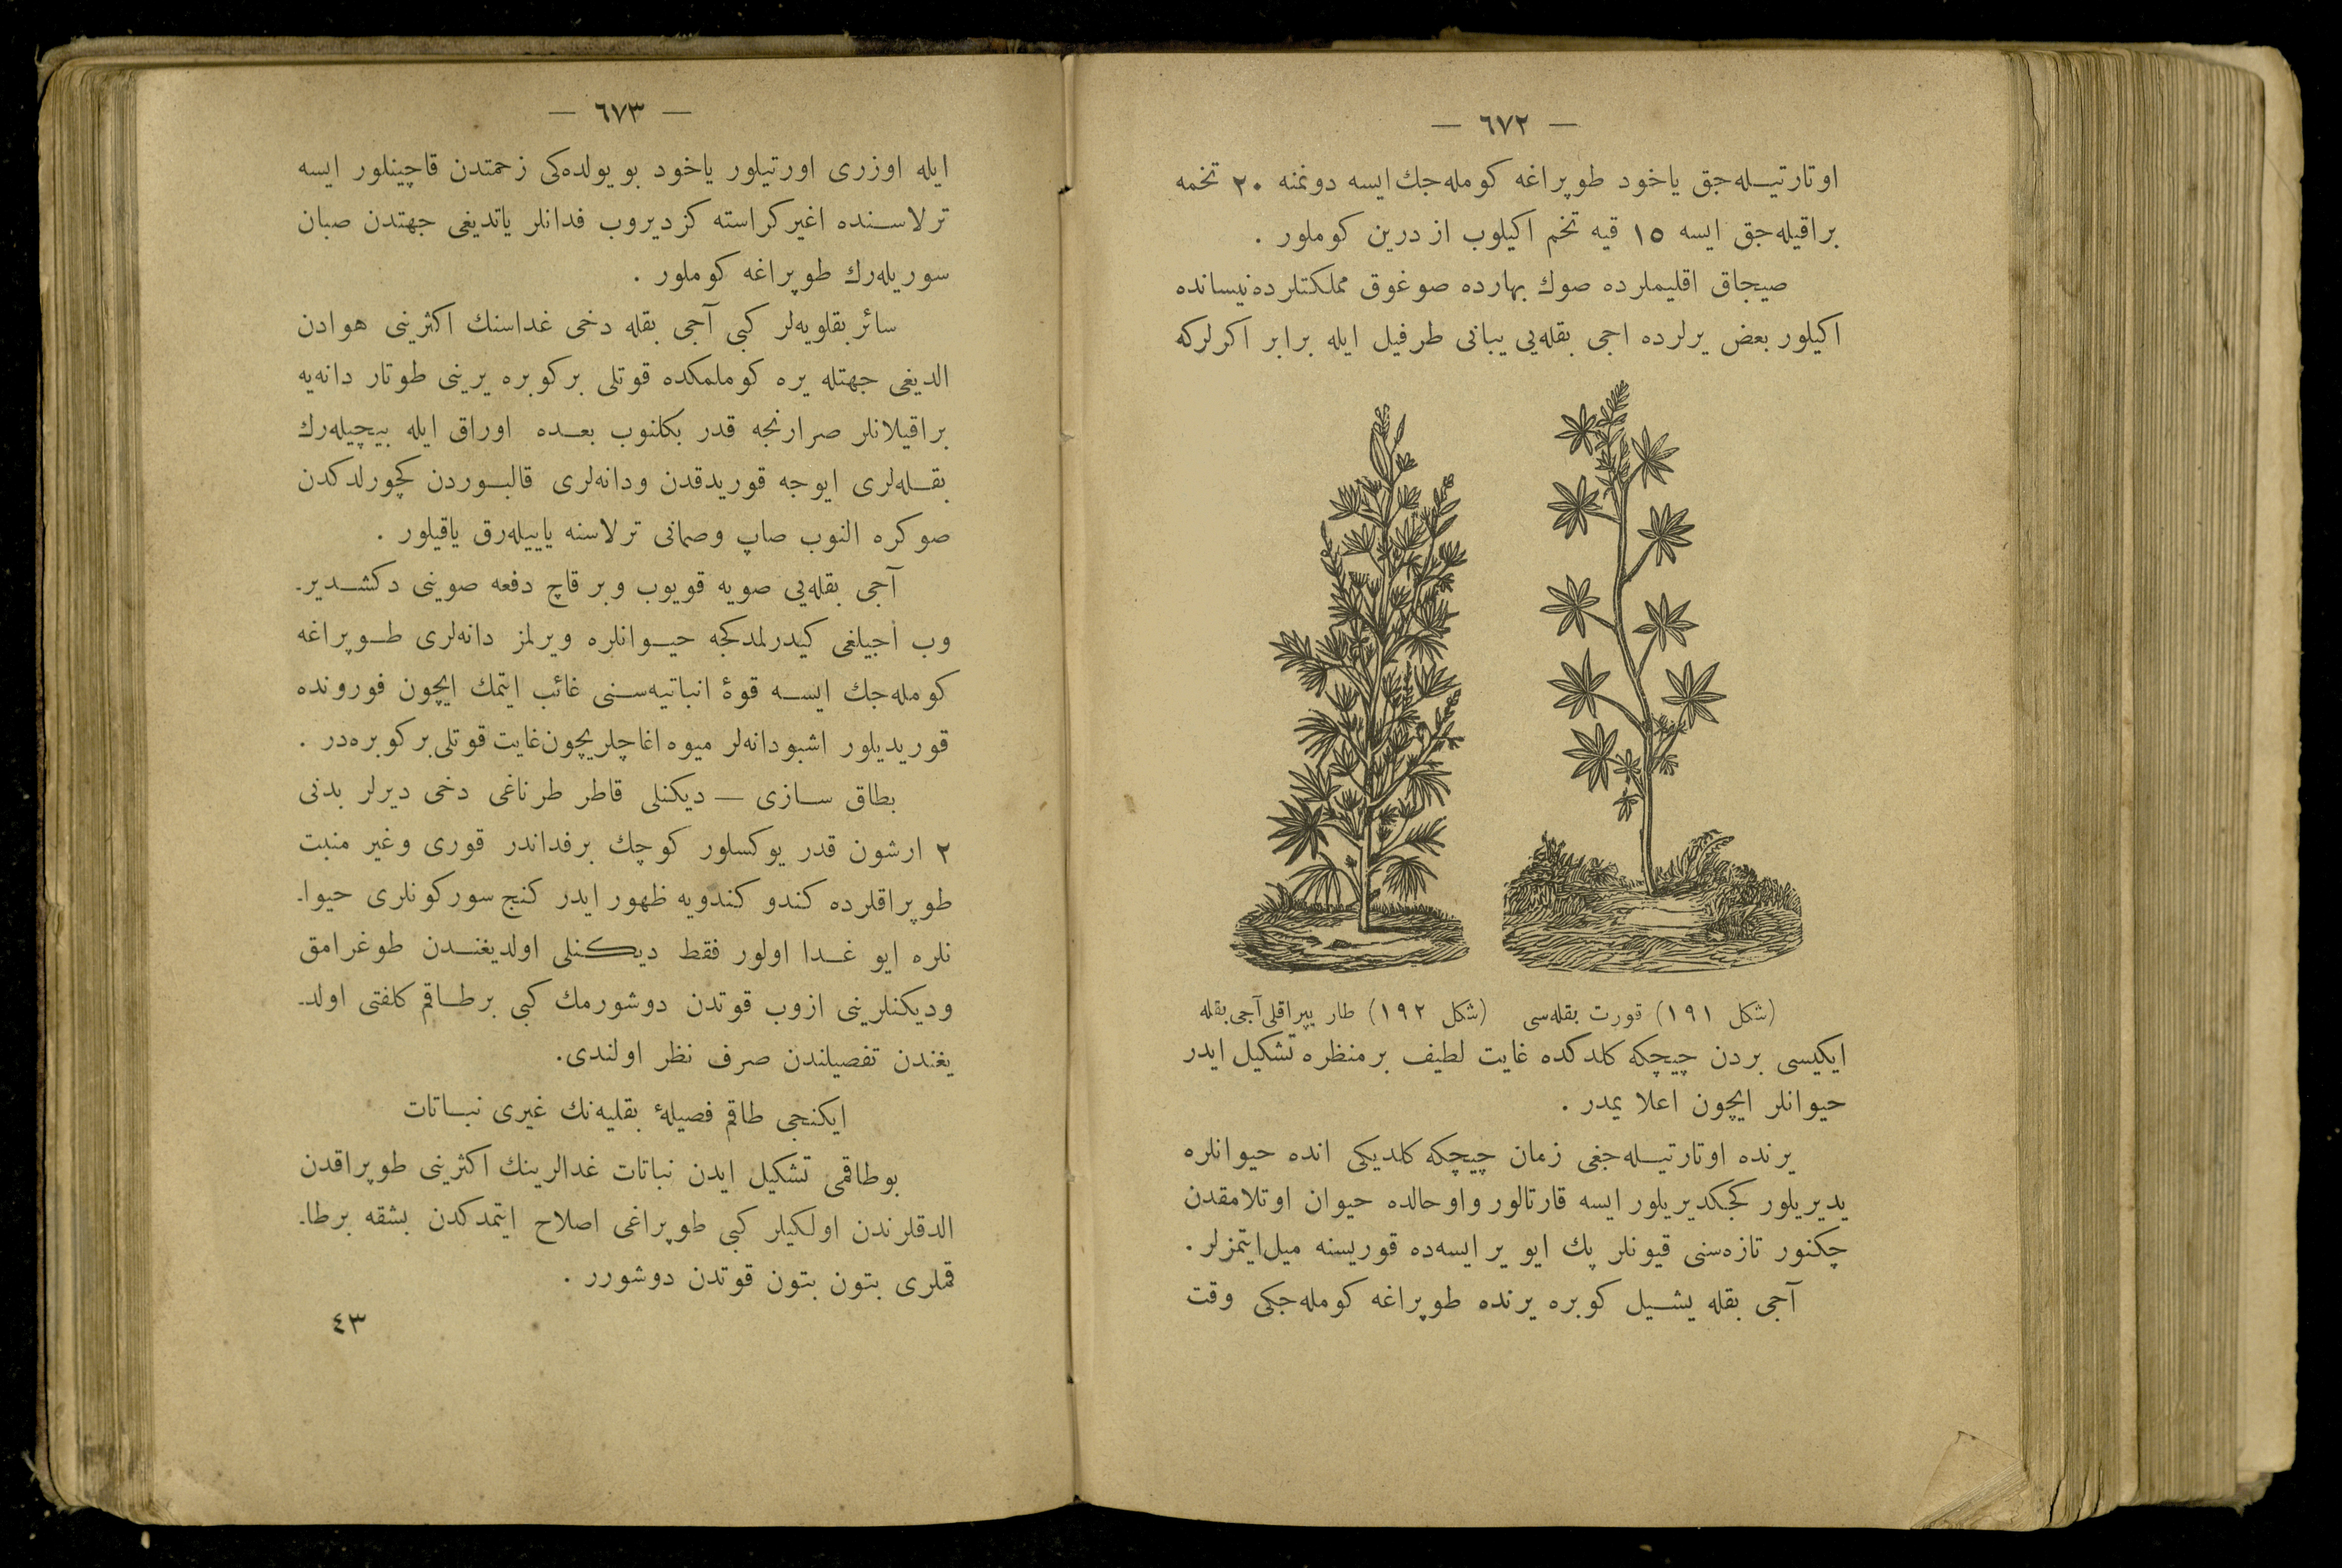 — ٦٧٢ —
اوتارتیله‌جق یاخود طوپراغه كومله‌جك ایسه دونمنه ٢٠ تخمه
براقیله‌جق ایسه ١٥ قیه تخم اكیلوب از درین كوملور .
صیجاق اقلیملرده صوك بهارده صوغوق مملكتلرده نیسانده
اكیلور بعض یرلرده اجی بقله‌یی یبانی طرفیل ایله برابر اكرلركه
(شكل ١٩١) قورت بقله‌سی (شكل ١٩٢) طار یپراقلی آجی بقله
ایكیسی بردن چیچكه كلدكده غایت لطیف بر منظره تشكیل ایدر
حیوانلر ایچون اعلا یمدر .
یرنده اوتارتیله‌جغی زمان چیچكه كلدیكی انده حیوانلره
یدیریلور كجكدیریلور ایسه قارتالور واوحالده حیوان اوتلامقدن
چكنور تازه‌سنی قیونلر پك ایو یر ایسه‌ده قوریسنه میل ایتمزلر .
آجی بقله یشیل كوبره یرنده طوپراغه كومله‌جكی وقت
— ٦٧٣ —
ایله اوزری اورتیلور یاخود بو یولده‌كی زحمتدن قاچینلور ایسه
ترلاسنده اغیر كراسته كزدیروب فدانلر یاتدیغی جهتدن صبان
سوریله‌رك طوپراغه كوملور .
سائر بقلویه‌لر كبی آجی بقله دخی غداسنك اكثرینی هوادن
الدیغی جهتله یره كوملمكده قوتلی بر كوبره یرینی طوتار دانه‌یه
براقیلانلر صرارنجه قدر بكلنوب بعده اوراق ایله بیچیله‌رك
بقله‌لری ایوجه قوریدقدن ودانه‌لری قالبوردن كچورلدكدن
صوكره النوب صاپ وصمانی ترلاسنه یاییله‌رق یاقیلور .
آجی بقله‌یی صویه قویوب وبر قاچ دفعه صوینی دكشدیر-
وب اجیلغی كیدرلمدكجه حیوانلره ویرلمز دانه‌لری طوپراغه
كومله‌جك ایسه قوۀ انباتیه‌سنی غائب ایتمك ایچون فورونده
قوریدیلور اشبو دانه‌لر میوه اغاچلریچون غایت قوتلی بر كوبره‌در .
بطاق سازی — دیكنلی قاطر طرناغی دخی دیرلر بدنی
٢ ارشون قدر یوكسلور كوچك بر فداندر قوری وغیر منبت
طوپراقلرده كندو كندویه ظهور ایدر كنج سوركونلری حیوا-
نلره ایو غدا اولور فقط دیكنلی اولدیغندن طوغرامق
ودیكنلرینی ازوب قوتدن دوشورمك كبی بر طاقم كلفتی اولد-
یغندن تفصیلندن صرف نظر اولندی.
ایكنجی طاقم فصیلۀ بقلیه‌نك غیری نباتات
بوطاقمی تشكیل ایدن نباتات غدالرینك اكثرینی طوپراقدن
الدقلرندن اولكیلر كبی طوپراغی اصلاح ایتمدكدن بشقه برطا-
قملری بتون بتون قوتدن دوشورر .
٤٣